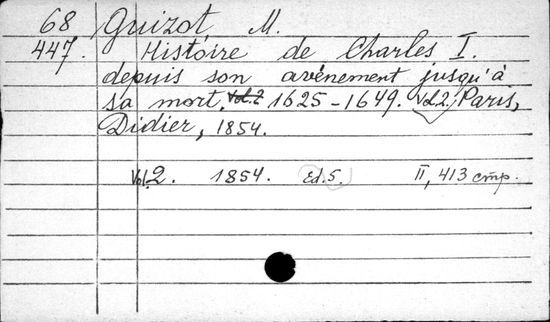 68 Guizot M.
447. Histoire de Charles I.
depuis son avénement jusqu'à
sa mort. Vol.2 1625-1649. Vol.2. Paris,
Didier, 1854.
Vol.2. 1854. Ed.5. II, 413 cmp.